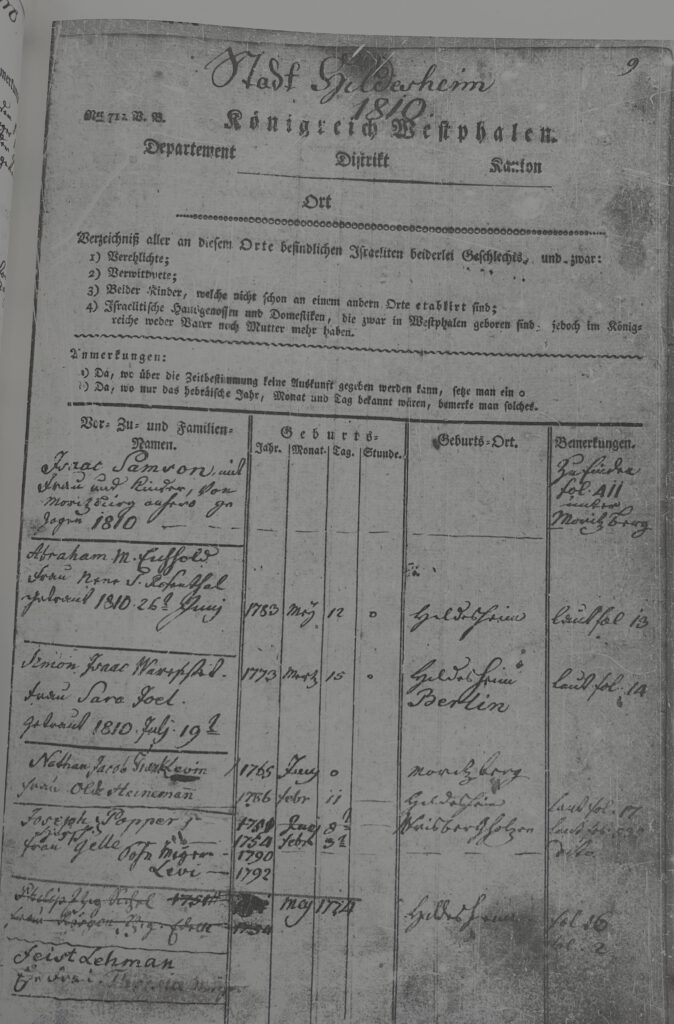 9
Stadt Hildesheim
1810
No. 712. B. B.
Königreich Westphalen.
Departement Distrikt Kanton
Ort
Verzeichniß aller an diesem Orte befindlichen Israeliten beiderlei Geschlechts, und zwar:
1) Verehlichte;
2) Verwittwete;
3) Beider Kinder, welche nicht schon an einem andern Orte etablirt sind;
4) Israelitische Hausgenossen und Domestiken, die zwar in Westphalen geboren sind, jedoch im König-
reiche weder Vater noch Mutter mehr haben.
Anmerkungen:
1) Da, wo über die Zeitbestimmung keine Auskunft gegeben werden kann, setze man ein o
2) Da, wo nur das hebräische Jahr, Monat und Tag bekannt wären, bemerke man solches.
Vor- Zu- und Familien-
Namen.
Geburts-
Jahr. Monat. Tag. Stunde.
Geburts-Ort.
Bemerkungen.
Isaac Samson mit
Frau und Kinder, von
Moritzburg
zogen 1810
Zu finden
fol. 411
unter
Moritzberg
Abraham M.
Frau S. Rosenthal
getraut 1810. 26t Junij 1783 Meij 12 o Hildesheim laut fol 13
Simon Isaac 1773 Mertz 15 o Hildesheim laut fol. 14
Frau Sara Joel. Berlin
getraut 1810. Julj. 19t
Nathan Jacob Levin 1765 Junij o Moritzberg
Frau Heinemann 1786 febr 11 Hildesheim laut fol. 17
Joseph Popper Junij 8t Wrisbergholzen laut fol.
Frau Gelle 1754 febr 3t dito
Sohn Meyer 1790
Levi 1792
Philip May Hildesheim fol. 16
Frau fol. 2
Feist Lehman
Frau